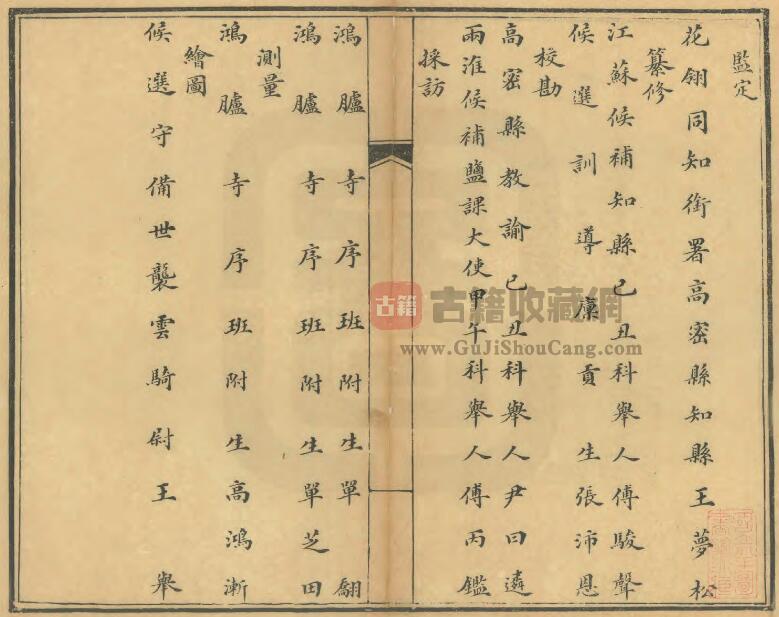 監定
花翎同知銜署高密縣知縣王夢松
纂修
江蘇候補知縣己丑科舉人傅駿聲
候選訓導廩貢生張沛恩
校勘
高密縣教諭己丑科舉人尹曰遴
兩淮候補鹽課大使甲午科舉人傅丙鑑
採訪
鴻臚寺序班附生單翮
鴻臚寺序班附生單芝田
測量
鴻臚寺序班附生高鴻漸
繪圖
候選守備世襲雲騎尉王舉
古籍
古籍收藏網
www.GuJiShouCang.com